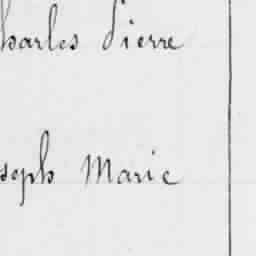 harles Pierre
seph Marie